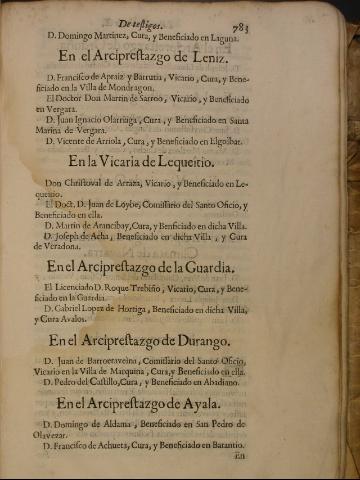 De testigos. 783
D. Domingo Martinez, Cura, y Beneficiado en Laguna.
En el Arciprestazgo de Leniz.
D. Francisco de Apraiz y Barrutia, Vicario, Cura, y Bene-
ficiado en la Villa de Mondragon.
El Doctor Don Martin de Sarroo, Vicario, y Beneficiado
en Vergara.
D. Juan Ignacio Olarriaga, Cura, y Beneficiado en Santa
Marina de Vergara.
D. Vicente de Arriola, Cura, y Beneficiado en Elgoibar.
En la Vicaria de Lequeitio.
Don Christoval de Arraza, Vicario, y Beneficiado en Le-
queitio.
El Doct. D. Juan de Loybe, Comissario del Santo Oficio, y
Beneficiado en ella.
D. Martin de Arancibay, Cura, y Benficiado en dicha Villa.
D. Joseph de Acha, Beneficiado en dicha Villa, y Cura
de Veradona.
En el Arciprestazgo de la Guardia.
El Licenciado D. Roque Trebiño, Vicario, Cura, y Bene-
ficiado en la Guardia.
D. Gabriel Lopez de Hortiga, Beneficiado en dicha Villa,
y Cura Avalos.
En el Arciprestazgo de Durango.
D. Juan de Barroetaveino, Comissario del Santo Oficio,
Vicario en la Villa de Marquina, Cura, y Beneficiado en ella.
D. Pedro del Castillo, Cura, y Beneficiado en Abadiano.
En el Arciprestazgo de Ayala.
D. Domingo de Aldama, Beneficiado en San Pedro de
Olavezar.
D. Francisco de Achueta, Cura, y Beneficiado en Barantio.
En